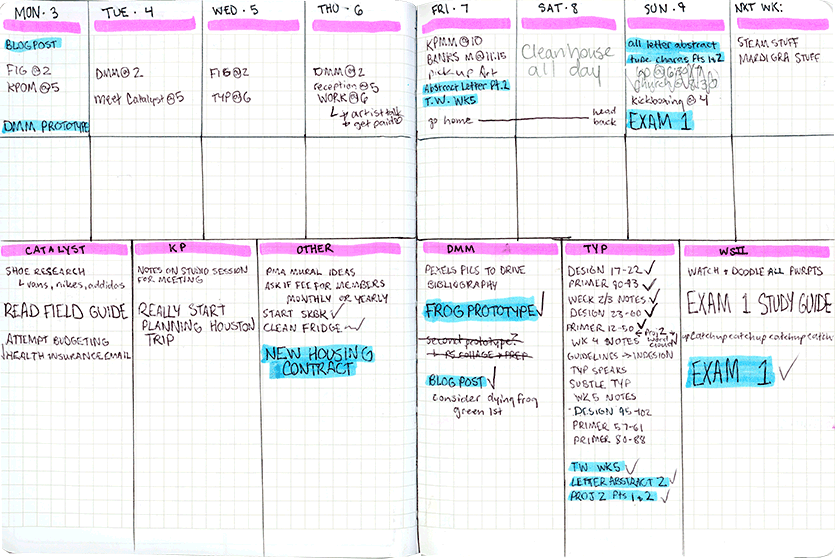 MON · 3
BLOG POST
FIG @ 2
KPOM @ 5
DMM PROTOTYPE
TUE · 4
DMM @ 2
meet Catalyst @ 5
WED · 5
FIG @ 2
TYP @ 6
THU · 6
DMM @ 2
reception @ 5
WORK @ 6
↳ artist talk
↳ get paid
FRI · 7
KPMM @ 10
BANKS M @ 11:15
pick-up Art
Abstract Letter Pt. 2
T.W. WK5
go home
head
back
SAT · 8
Clean house
all day
SUN · 9
all letter abstract
type charas Pts 1+2
church @
kickboxing @ 4
EXAM 1
NXT WK:
STEAM STUFF
MARDI GRA STUFF
CATALYST
SHOE RESEARCH
↳ vans, nikes, addidas
READ FIELD GUIDE
ATTEMPT BUDGETING
HEALTH INSURANCE EMAIL
KP
NOTES ON STUDIO SESSION
FOR MEETING
REALLY START
PLANNING HOUSTON
TRIP
OTHER
PMA MURAL IDEAS
ASK IF FEE FOR MEMBERS
MONTHLY OR YEARLY
START SKBK ✓
CLEAN FRIDGE
NEW HOUSING
CONTRACT
DMM
PEXELS PICS TO DRIVE
BIBLIOGRAPHY
FROG PROTOTYPE ✓
second prototype?
↳ PS COLLAGE + PREP
BLOG POST ✓
consider dying frog
green 1st
TYP
DESIGN 17-22 ✓
PRIMER 90-93 ✓
WEEK 2/3 NOTES ✓
DESIGN 23-60 ✓
PRIMER 12-50 ✓
WK 4 NOTES
Proj 2
word
clouds
GUIDELINES → INDESIGN
TYP SPEAKS
SUBTLE TYP
WK5 NOTES
DESIGN 95-102
PRIMER 57-61
PRIMER 80-88
TW WK5 ✓
LETTER ABSTRACT 2 ✓
PROJ 2 Pts 1+2 ✓
WSII
WATCH + DOODLE ALL PWRPTS
EXAM 1 STUDY GUIDE
catchup catchup catchup catchup
EXAM 1 ✓